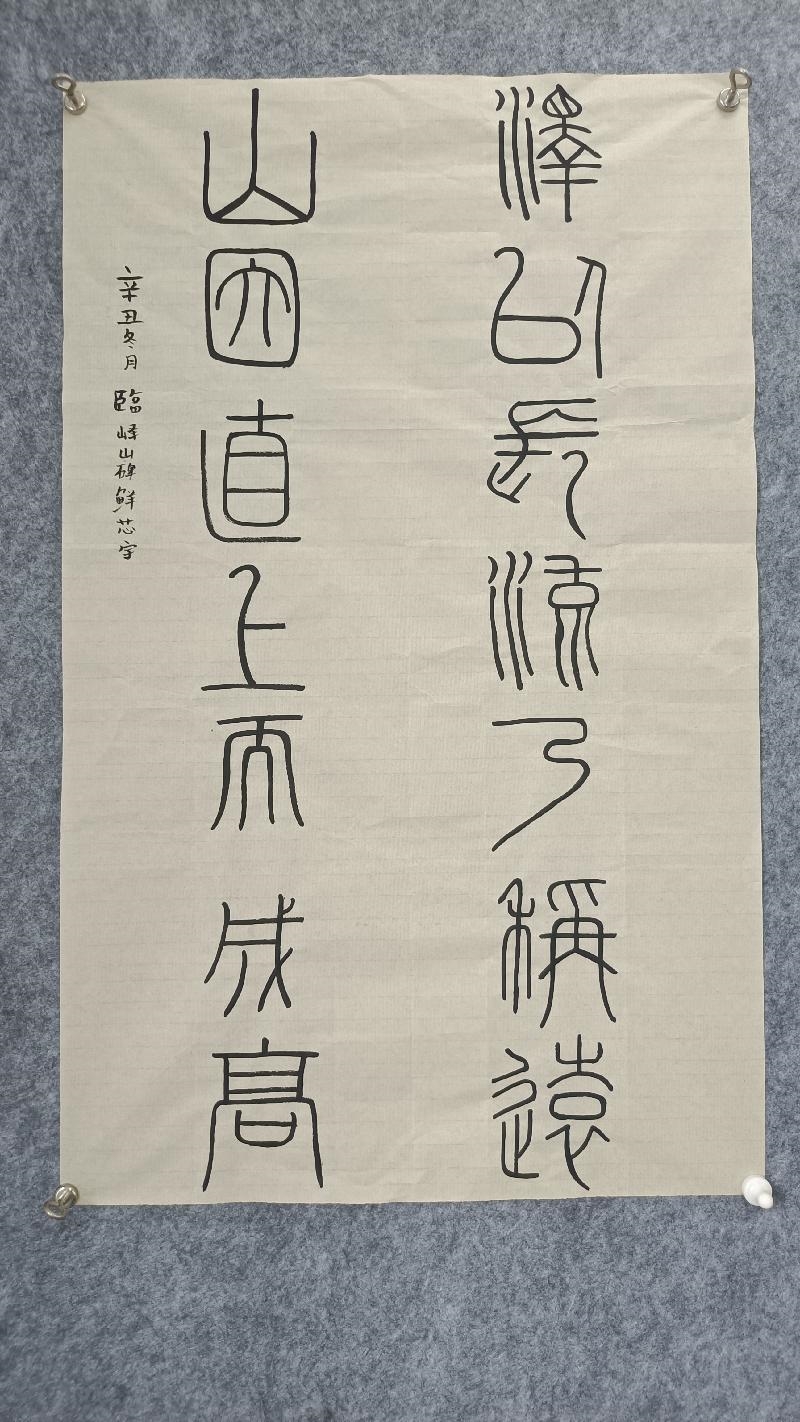 澤以長流乃稱遠
山因直上而成高
辛丑冬月臨嶧山碑鮮芯宇